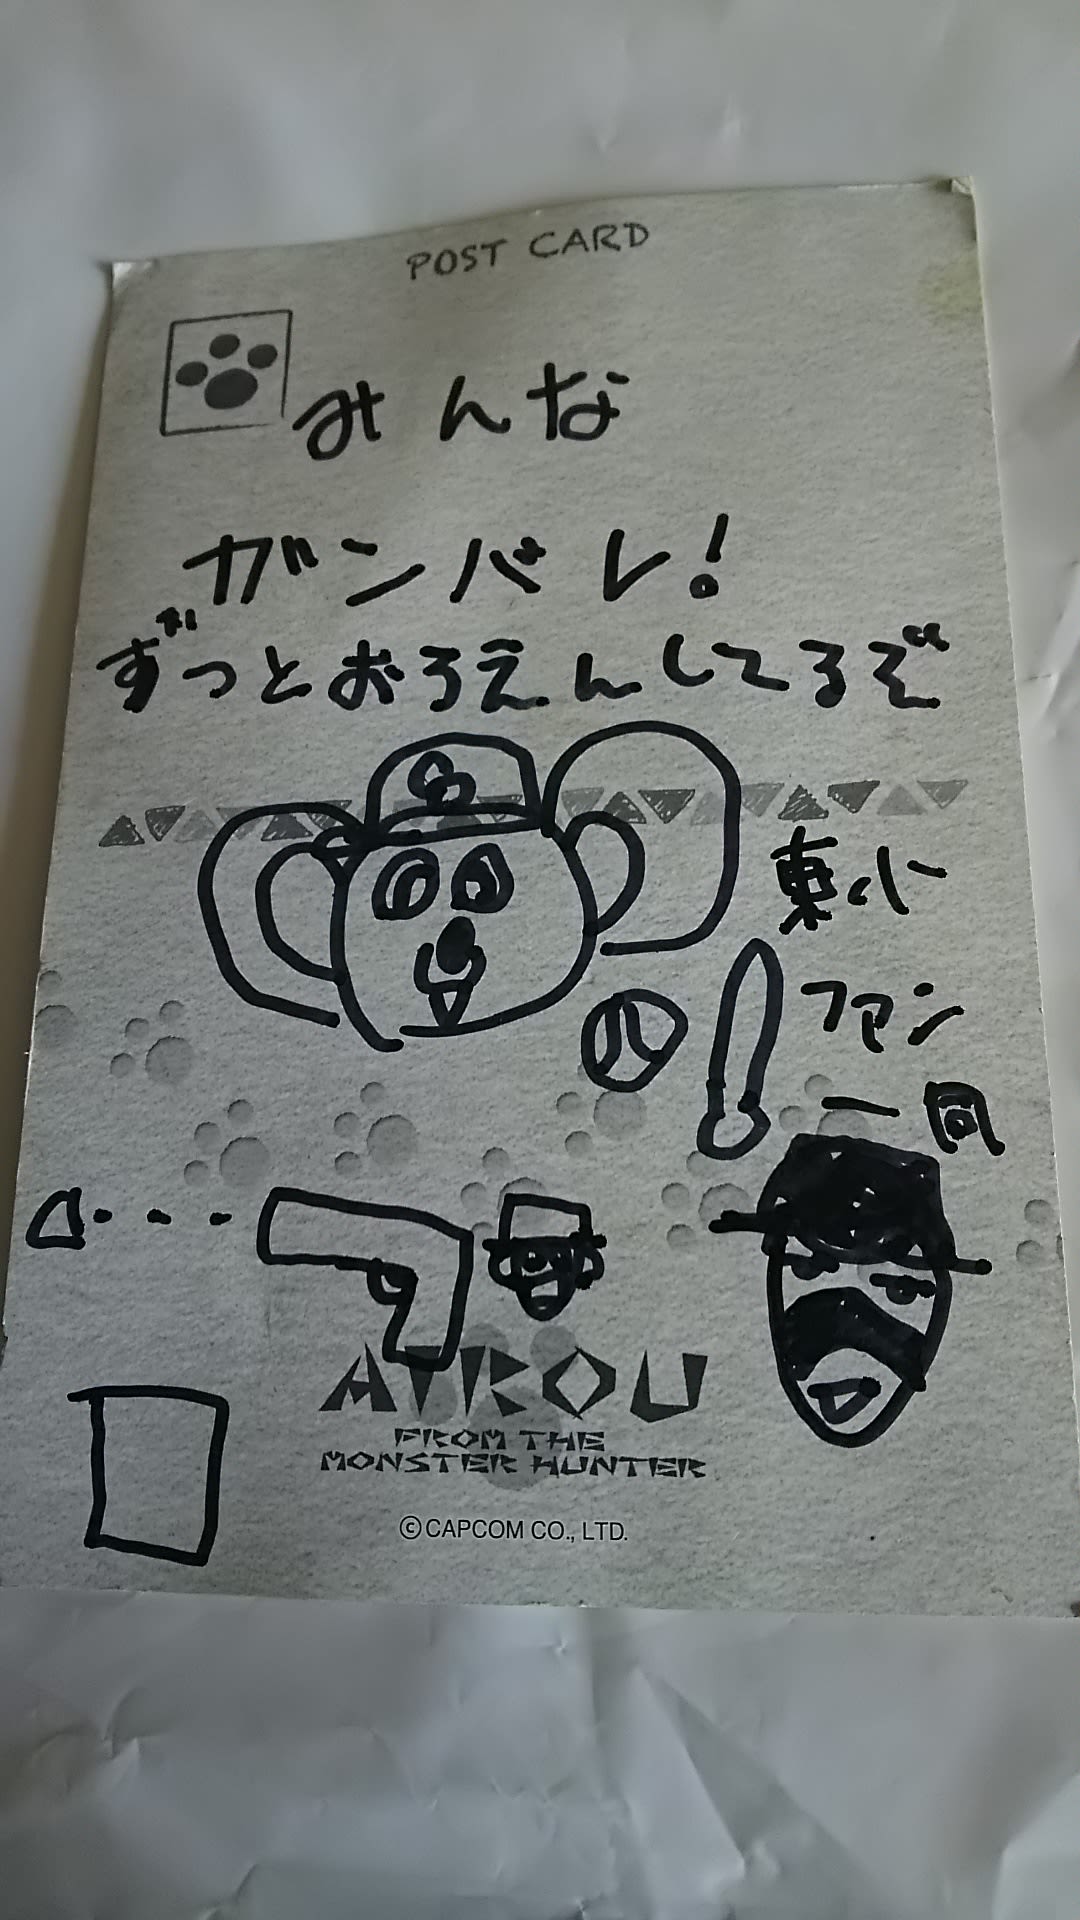 POST CARD
みんな
ガンバレ!
ずっとおうえんしてるぞ
東小
ファン
一同
AIROU
FROM THE
MONSTER HUNTER
©CAPCOM CO., LTD.